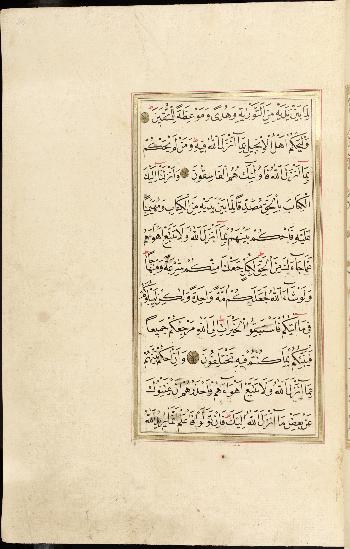 لِمَا بَيْنَ يَدَيْهِ مِنَ التَّوْرٰيةِ وَهُدًى وَمَوْعِظَةً لِلْمُتَّقِينَ
وَلْيَحْكُمْ اَهْلُ الْاِنْجِيلِ بِمَا اَنْزَلَ اللّٰهُ فِيهِ وَمَنْ لَمْ يَحْكُمْ
بِمَا اَنْزَلَ اللّٰهُ فَاُولٰئِكَ هُمُ الْفَاسِقُونَ وَاَنْزَلْنَا اِلَيْكَ
الْكِتَابَ بِالْحَقِّ مُصَدِّقًا لِمَا بَيْنَ يَدَيْهِ مِنَ الْكِتَابِ وَمُهَيْمِنًا
عَلَيْهِ فَاحْكُمْ بَيْنَهُمْ بِمَا اَنْزَلَ اللّٰهُ وَلَا تَتَّبِعْ اَهْوَاءَهُمْ
عَمَّا جَاءَكَ مِنَ الْحَقِّ لِكُلٍّ جَعَلْنَا مِنْكُمْ شِرْعَةً وَمِنْهَاجًا
وَلَوْ شَاءَ اللّٰهُ لَجَعَلَكُمْ اُمَّةً وَاحِدَةً وَلٰكِنْ لِيَبْلُوَكُمْ
فِي مَا اٰتٰيكُمْ فَاسْتَبِقُوا الْخَيْرَاتِ اِلَى اللّٰهِ مَرْجِعُكُمْ جَمِيعًا
فَيُنَبِّئُكُمْ بِمَا كُنْتُمْ فِيهِ تَخْتَلِفُونَ وَاَنِ احْكُمْ بَيْنَهُمْ
بِمَا اَنْزَلَ اللّٰهُ وَلَا تَتَّبِعْ اَهْوَاءَهُمْ وَاحْذَرْهُمْ اَنْ يَفْتِنُوكَ
عَنْ بَعْضِ مَا اَنْزَلَ اللّٰهُ اِلَيْكَ فَاِنْ تَوَلَّوْا فَاعْلَمْ اَنَّمَا يُرِيدُ اللّٰهُ